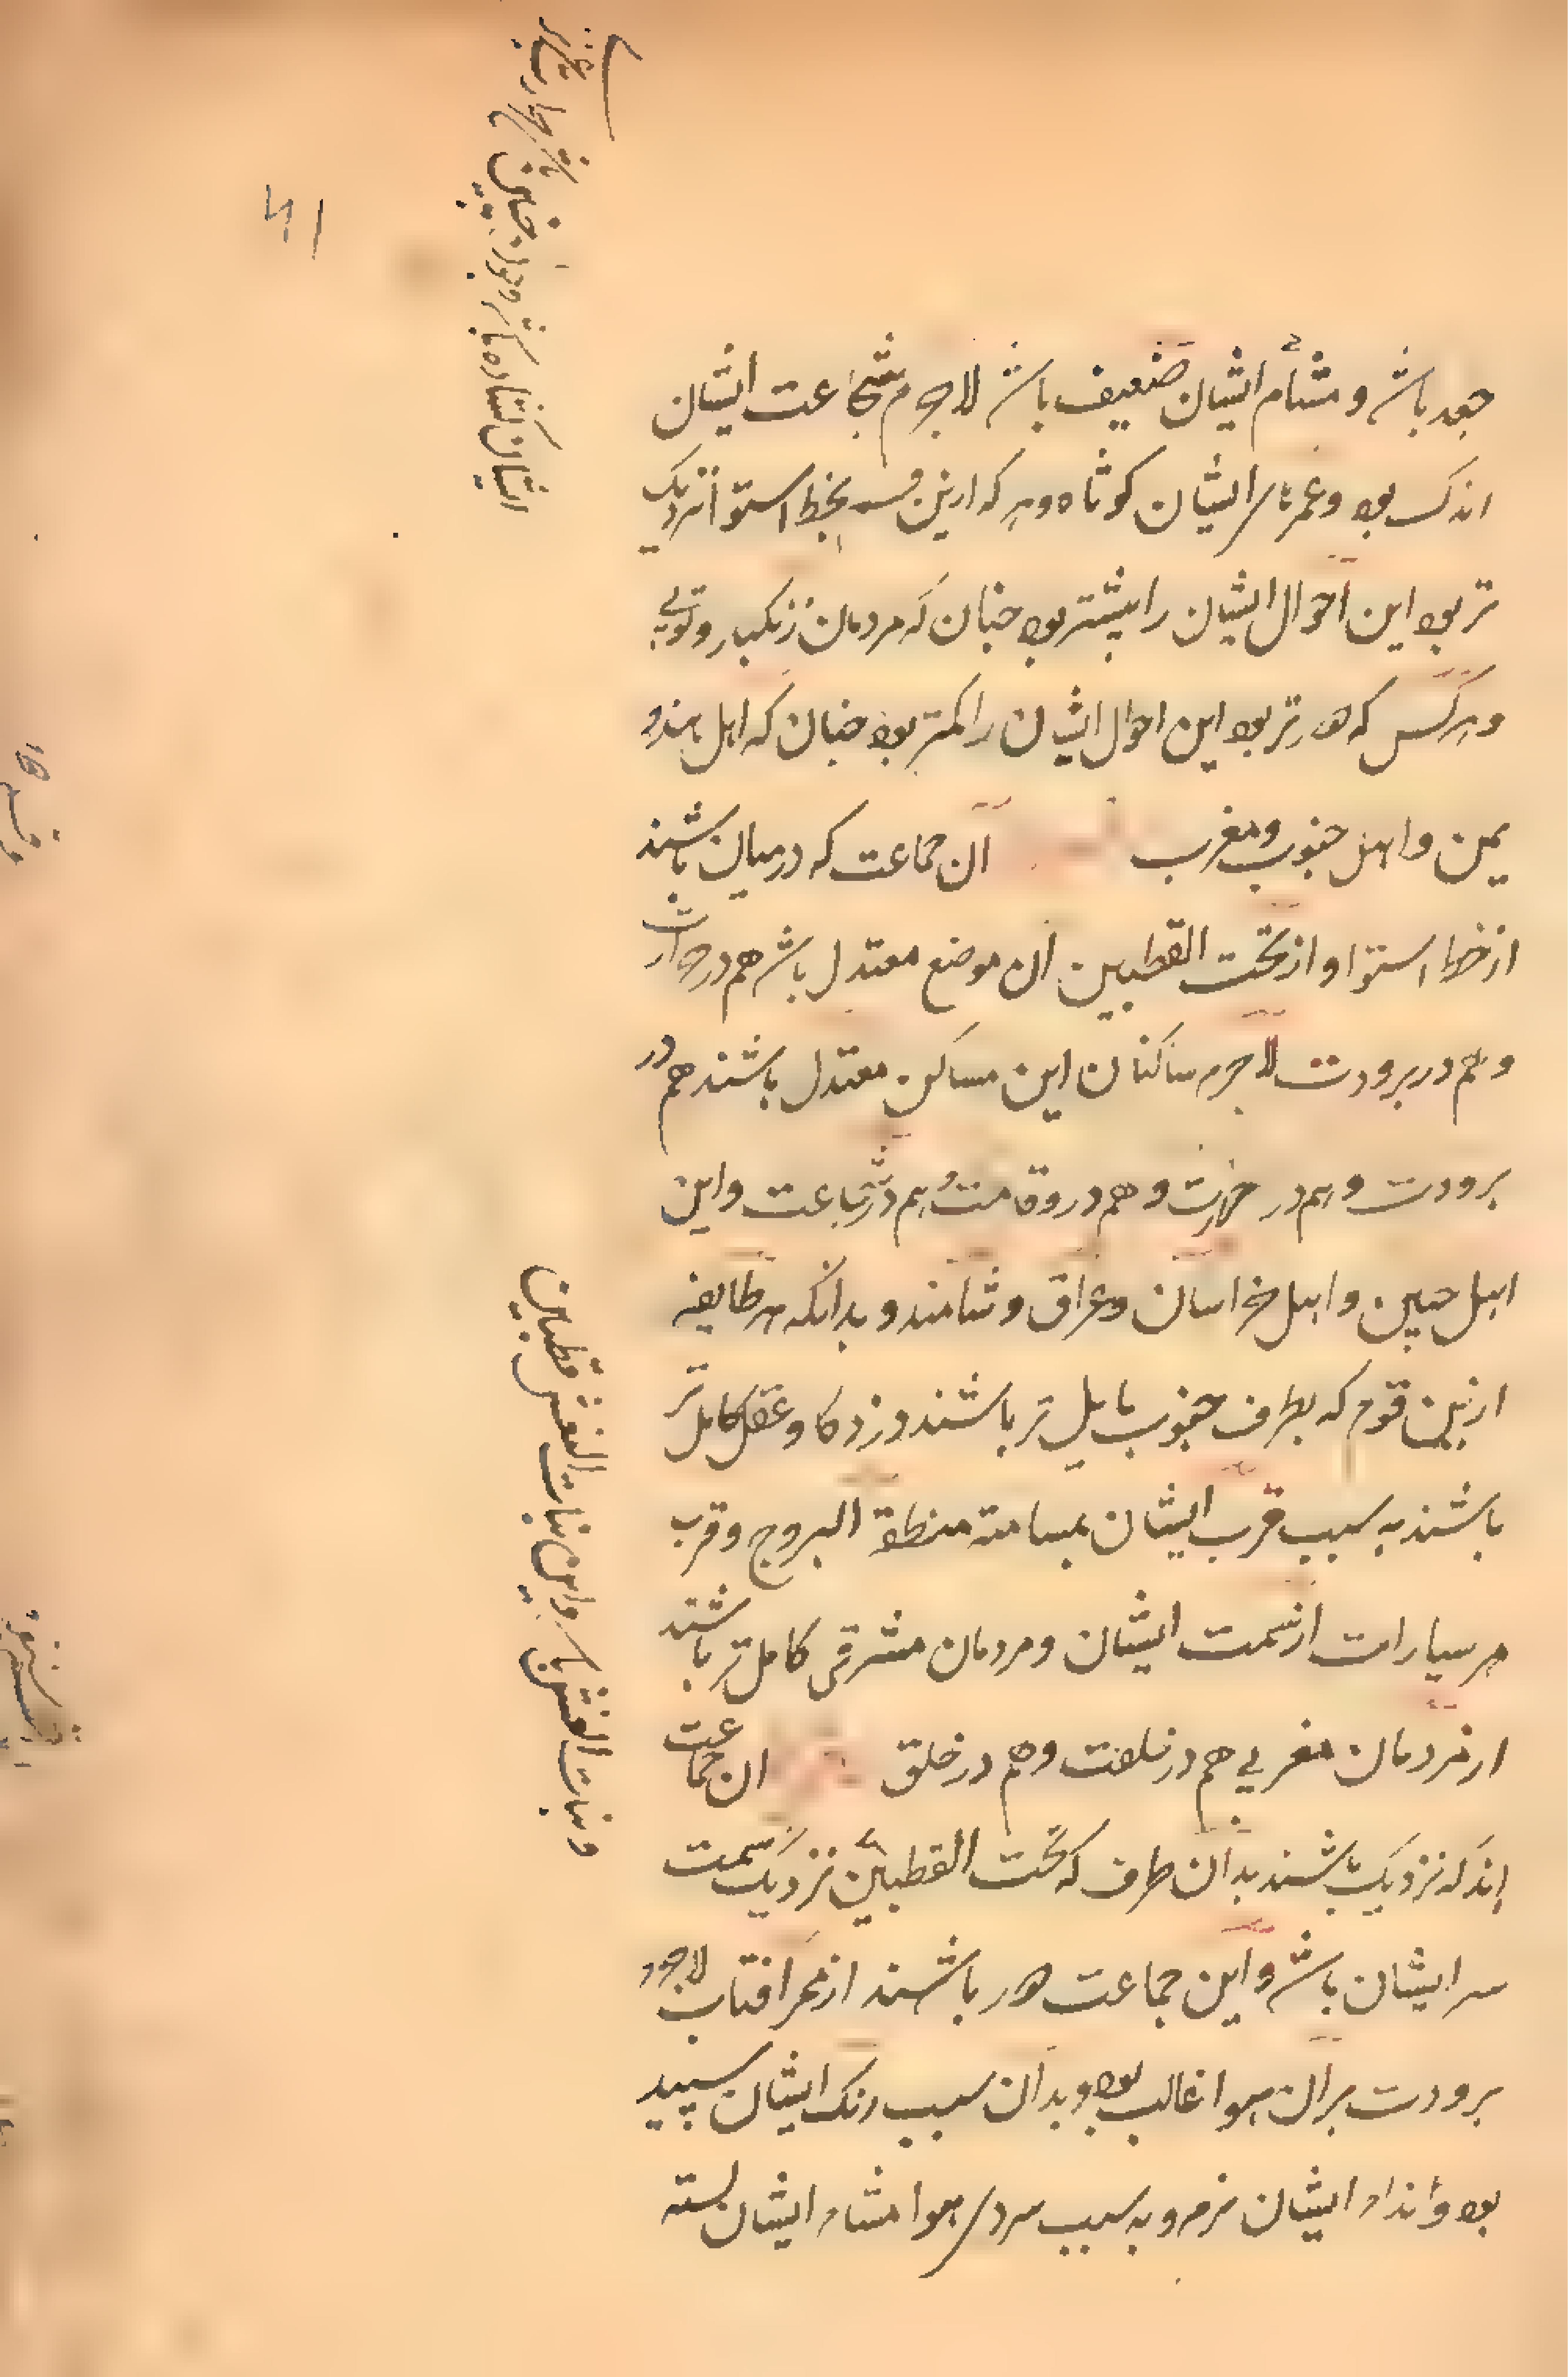 جعد باشد و مشام ایشان ضعیف باشد لاجرم شجاعت ایشان
اندک بود و عمرهای ایشان کوتاه و هر که ازین قسم بخط استوا نزدیک
تر بود این احوال ایشان را بیشتر بود چنان که مردمان زنکبار و نوبی
و هرکس که دورتر بود این احوال ایشان را کمتر بود چنان که اهل هند و
یمن و اهل جنوب و مغرب آن جماعت که در میان باشند
از خط استوا و از تحت القطبین آن موضع معتدل باشد هم در حرارت
و هم در برودت لاجرم ساکنان این مساکن معتدل باشند هم در
برودت و هم در حرارت و هم در وقامت و هم در شجاعت و این
اهل چین و اهل خراسان و عراق و شامند و بدانکه هر طایفه
ازین قوم که بطرف جنوب مایل تر باشند در ذکا و عقل کامل تر
باشند به سبب قرب ایشان بمسامته منطقة البروج و قرب
مر سیارات از سمت ایشان و مردمان مشرقی کامل تر باشند
از مردمان مغربی هم در خلقت و هم در خلق ان جماعت
اند که نزدیک باشند بدان طرف که تحت القطبین نزدیک سمت
سر ایشان باشد و این جماعت دور باشند از ممر افتاب لاجرم
برودت بران هوا غالب بود و بدان سبب رنک ایشان سپید
بود و اندام ایشان نرم و به سبب سردی هوا مشام ایشان بسته
و بنات النعش
و این بنات النعش قطبین
ایشان کشاده